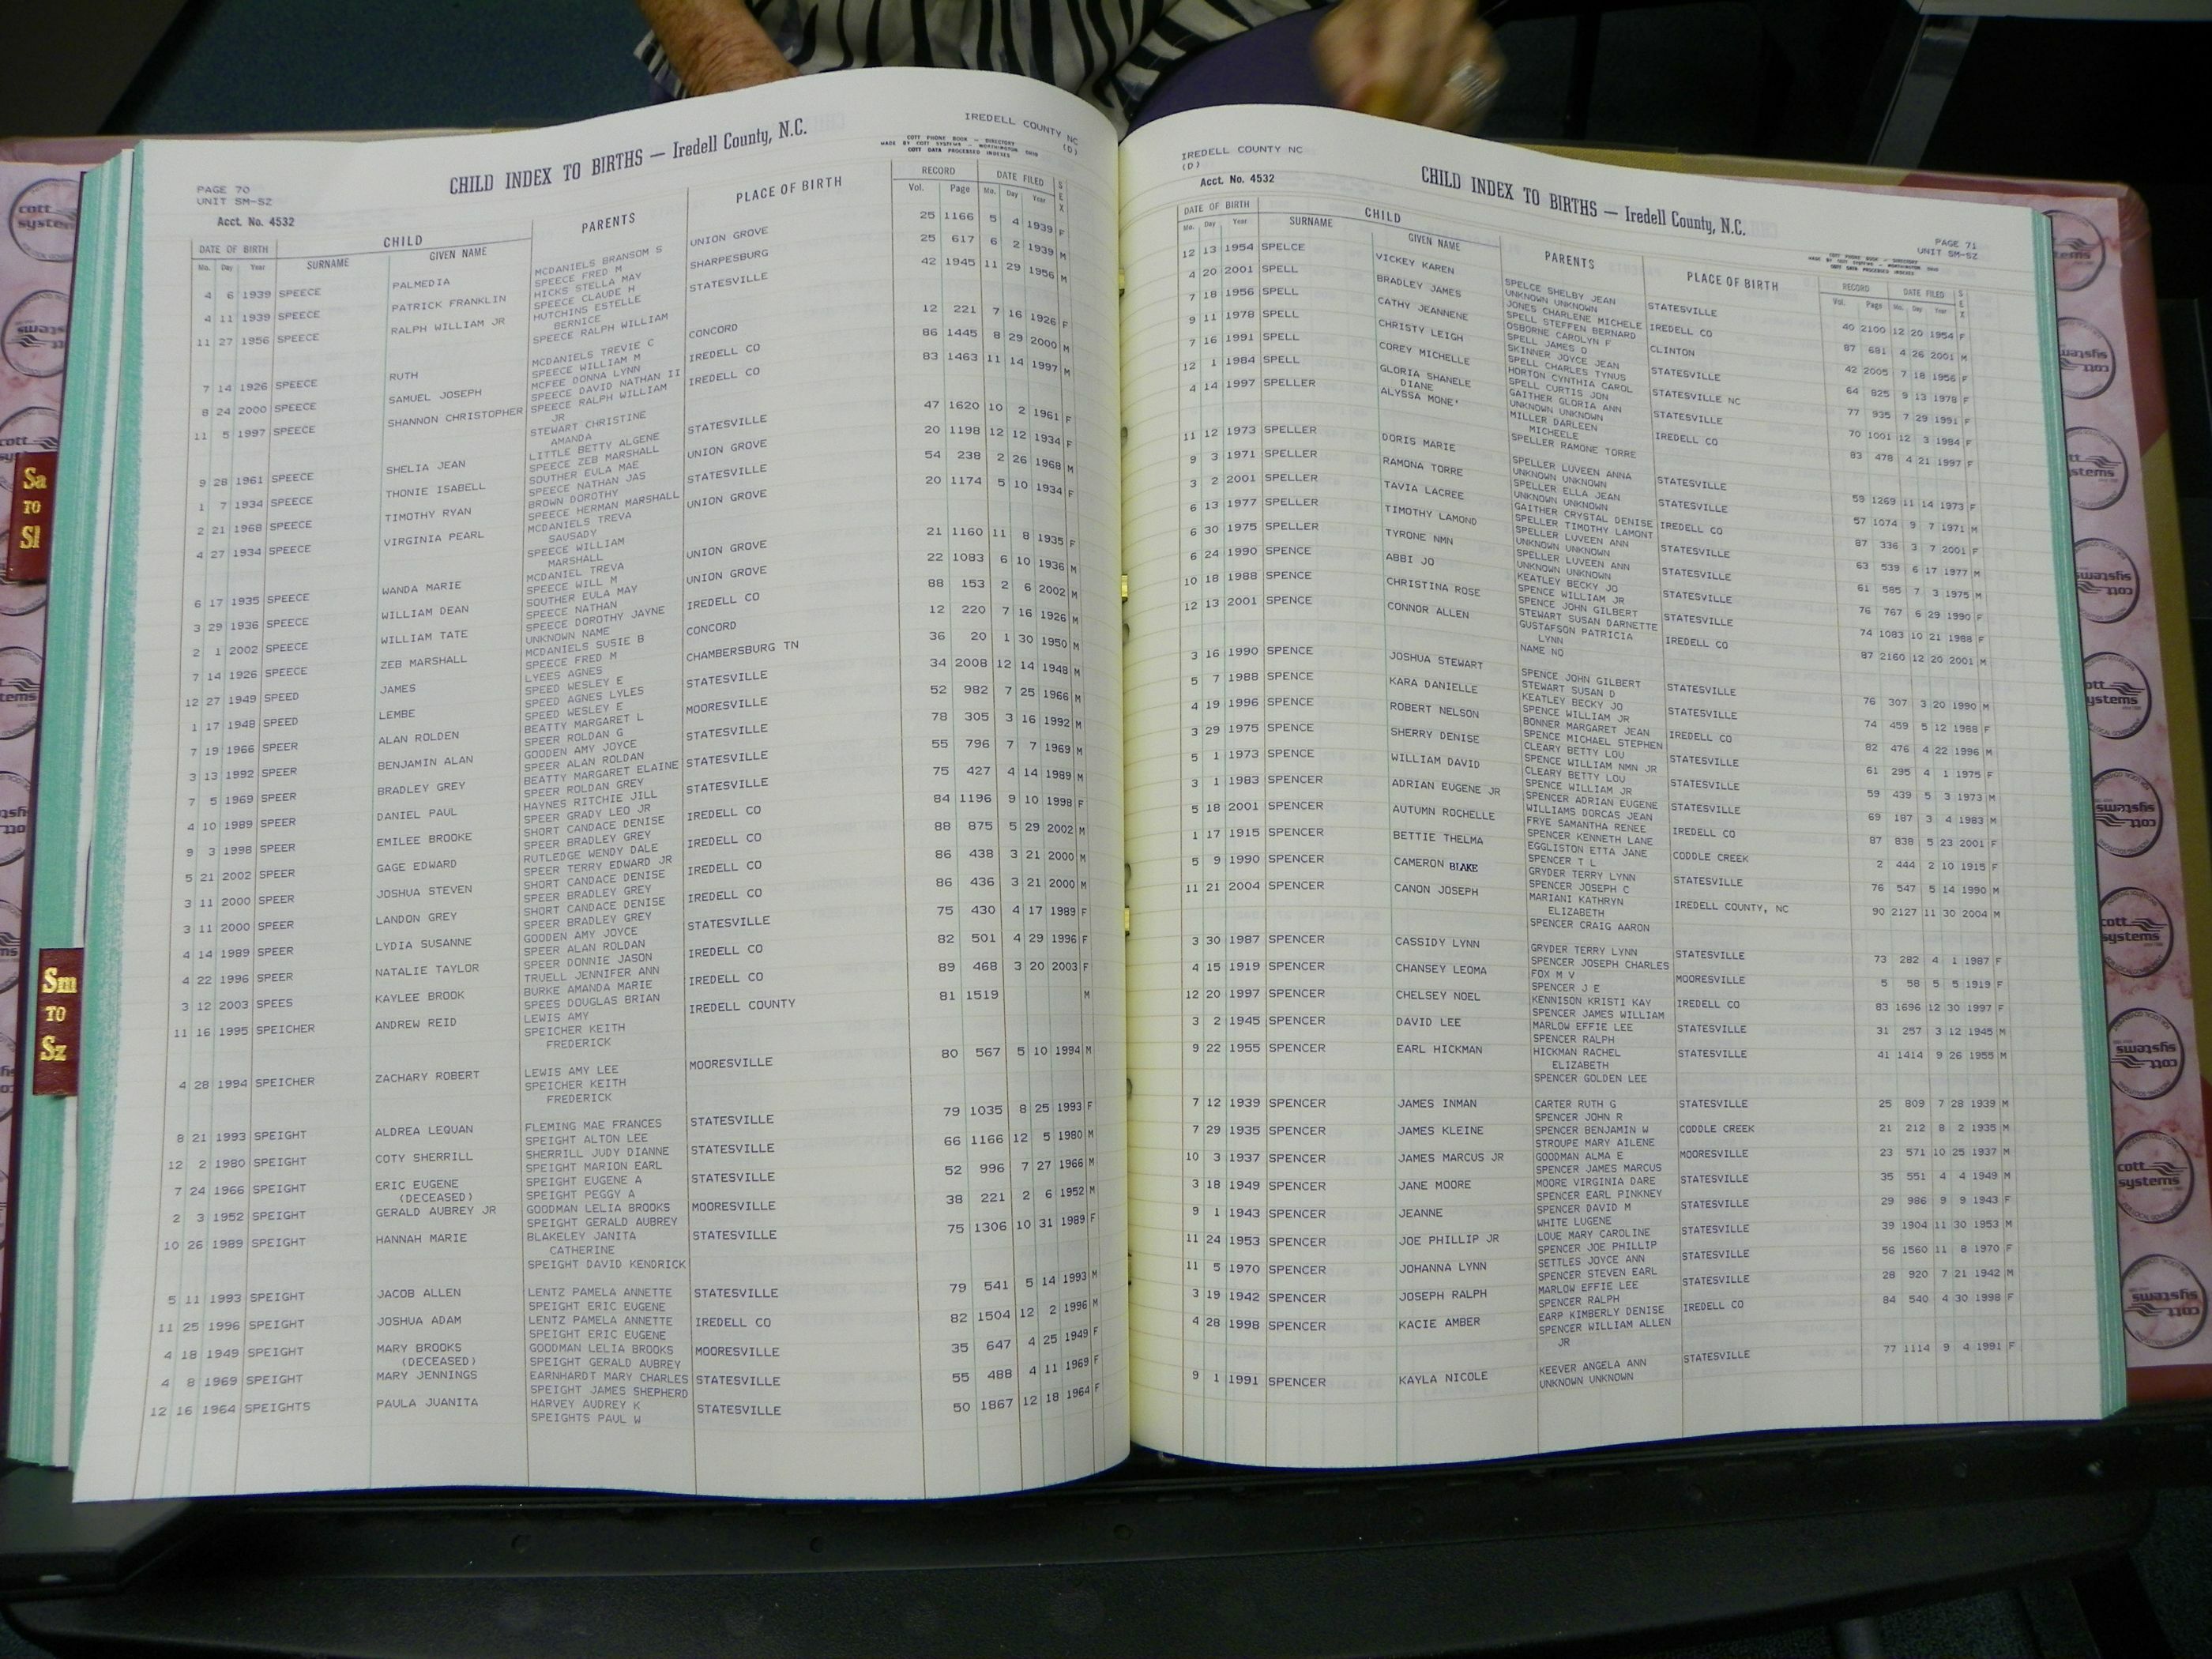 IREDELL COUNTY NC
(D)
COTT PHONE BOOK — DIRECTORY
MADE BY COTT SYSTEMS — WORTHINGTON OHIO
COTT DATA PROCESSED INDEXES
CHILD INDEX TO BIRTHS — Iredell County, N.C.
PAGE 70
UNIT SM-SZ
Acct. No. 4532
DATE OF BIRTH CHILD PARENTS PLACE OF BIRTH RECORD DATE FILED SEX
Mo. Day Year SURNAME GIVEN NAME Vol. Page Mo. Day Year
4 6 1939 SPEECE PALMEDIA MCDANIELS BRANSOM S UNION GROVE 25 1166 5 4 1939 F
SPEECE FRED M
4 11 1939 SPEECE PATRICK FRANKLIN HICKS STELLA MAY SHARPESBURG 25 617 6 2 1939 M
SPEECE CLAUDE H
11 27 1956 SPEECE RALPH WILLIAM JR HUTCHINS ESTELLE STATESVILLE 42 1945 11 29 1956 M
BERNICE
SPEECE RALPH WILLIAM
7 14 1926 SPEECE RUTH MCDANIELS TREVIE C CONCORD 12 221 7 16 1926 F
SPEECE WILLIAM M
8 24 2000 SPEECE SAMUEL JOSEPH MCFEE DONNA LYNN IREDELL CO 86 1445 8 29 2000 M
SPEECE DAVID NATHAN II
11 5 1997 SPEECE SHANNON CHRISTOPHER SPEECE RALPH WILLIAM IREDELL CO 83 1463 11 14 1997 M
JR
STEWART CHRISTINE
AMANDA
9 28 1961 SPEECE SHELIA JEAN LITTLE BETTY ALGENE STATESVILLE 47 1620 10 2 1961 F
SPEECE ZEB MARSHALL
1 7 1934 SPEECE THONIE ISABELL SOUTHER EULA MAE UNION GROVE 20 1198 12 12 1934 F
SPEECE NATHAN JAS
2 21 1968 SPEECE TIMOTHY RYAN BROWN DOROTHY STATESVILLE 54 238 2 26 1968 M
SPEECE HERMAN MARSHALL
4 27 1934 SPEECE VIRGINIA PEARL MCDANIELS TREVA UNION GROVE 20 1174 5 10 1934 F
SAUSADY
SPEECE WILLIAM
MARSHALL
6 17 1935 SPEECE WANDA MARIE MCDANIEL TREVA UNION GROVE 21 1160 11 8 1935 F
SPEECE WILL M
3 29 1936 SPEECE WILLIAM DEAN SOUTHER EULA MAY UNION GROVE 22 1083 6 10 1936 M
SPEECE NATHAN
2 1 2002 SPEECE WILLIAM TATE SPEECE DOROTHY JAYNE IREDELL CO 88 153 2 6 2002 M
UNKNOWN NAME
7 14 1926 SPEECE ZEB MARSHALL MCDANIELS SUSIE B CONCORD 12 220 7 16 1926 M
SPEECE FRED M
12 27 1949 SPEED JAMES LYEES AGNES CHAMBERSBURG TN 36 20 1 30 1950 M
SPEED WESLEY E
1 17 1948 SPEED LEMBE SPEED AGNES LYLES STATESVILLE 34 2008 12 14 1948 M
SPEED WESLEY E
7 19 1966 SPEER ALAN ROLDEN BEATTY MARGARET L MOORESVILLE 52 982 7 25 1966 M
SPEER ROLDAN G
3 13 1992 SPEER BENJAMIN ALAN GOODEN AMY JOYCE STATESVILLE 78 305 3 16 1992 M
SPEER ALAN ROLDAN
7 5 1969 SPEER BRADLEY GREY BEATTY MARGARET ELAINE STATESVILLE 55 796 7 7 1969 M
SPEER ROLDAN GREY
4 10 1989 SPEER DANIEL PAUL HAYNES RITCHIE JILL STATESVILLE 75 427 4 14 1989 M
SPEER GRADY LEO JR
9 3 1998 SPEER EMILEE BROOKE SHORT CANDACE DENISE IREDELL CO 84 1196 9 10 1998 F
SPEER BRADLEY GREY
5 21 2002 SPEER GAGE EDWARD RUTLEDGE WENDY DALE IREDELL CO 88 875 5 29 2002 M
SPEER TERRY EDWARD JR
3 11 2000 SPEER JOSHUA STEVEN SHORT CANDACE DENISE IREDELL CO 86 438 3 21 2000 M
SPEER BRADLEY GREY
3 11 2000 SPEER LANDON GREY SHORT CANDACE DENISE IREDELL CO 86 436 3 21 2000 M
SPEER BRADLEY GREY
4 14 1989 SPEER LYDIA SUSANNE GOODEN AMY JOYCE STATESVILLE 75 430 4 17 1989 F
SPEER ALAN ROLDAN
4 22 1996 SPEER NATALIE TAYLOR SPEER DONNIE JASON IREDELL CO 82 501 4 29 1996 F
TRUELL JENNIFER ANN
3 12 2003 SPEES KAYLEE BROOK BURKE AMANDA MARIE IREDELL CO 89 468 3 20 2003 F
SPEES DOUGLAS BRIAN
11 16 1995 SPEICHER ANDREW REID LEWIS AMY IREDELL COUNTY 81 1519 M
SPEICHER KEITH
FREDERICK
4 28 1994 SPEICHER ZACHARY ROBERT LEWIS AMY LEE MOORESVILLE 80 567 5 10 1994 M
SPEICHER KEITH
FREDERICK
8 21 1993 SPEIGHT ALDREA LEQUAN FLEMING MAE FRANCES STATESVILLE 79 1035 8 25 1993 F
SPEIGHT ALTON LEE
12 2 1980 SPEIGHT COTY SHERRILL SHERRILL JUDY DIANNE STATESVILLE 66 1166 12 5 1980 M
SPEIGHT MARION EARL
7 24 1966 SPEIGHT ERIC EUGENE SPEIGHT EUGENE A STATESVILLE 52 996 7 27 1966 M
(DECEASED) SPEIGHT PEGGY A
2 3 1952 SPEIGHT GERALD AUBREY JR GOODMAN LELIA BROOKS MOORESVILLE 38 221 2 6 1952 M
SPEIGHT GERALD AUBREY
10 26 1989 SPEIGHT HANNAH MARIE BLAKELEY JANITA STATESVILLE 75 1306 10 31 1989 F
CATHERINE
SPEIGHT DAVID KENDRICK
5 11 1993 SPEIGHT JACOB ALLEN LENTZ PAMELA ANNETTE STATESVILLE 79 541 5 14 1993 M
SPEIGHT ERIC EUGENE
11 25 1996 SPEIGHT JOSHUA ADAM LENTZ PAMELA ANNETTE IREDELL CO 82 1504 12 2 1996 M
SPEIGHT ERIC EUGENE
4 18 1949 SPEIGHT MARY BROOKS GOODMAN LELIA BROOKS MOORESVILLE 35 647 4 25 1949 F
(DECEASED) SPEIGHT GERALD AUBREY
4 8 1969 SPEIGHT MARY JENNINGS EARNHARDT MARY CHARLES STATESVILLE 55 488 4 11 1969 F
SPEIGHT JAMES SHEPHERD
12 16 1964 SPEIGHTS PAULA JUANITA HARVEY AUDREY K STATESVILLE 50 1867 12 18 1964 F
SPEIGHTS PAUL W
IREDELL COUNTY NC
(D)
Acct. No. 4532
CHILD INDEX TO BIRTHS — Iredell County, N.C.
PAGE 71
UNIT SM-SZ
COTT PHONE BOOK — DIRECTORY
MADE BY COTT SYSTEMS — WORTHINGTON OHIO
COTT DATA PROCESSED INDEXES
DATE OF BIRTH CHILD PARENTS PLACE OF BIRTH RECORD DATE FILED SEX
Mo. Day Year SURNAME GIVEN NAME Vol. Page Mo. Day Year
12 13 1954 SPELCE VICKEY KAREN SPELCE SHELBY JEAN STATESVILLE 40 2100 12 20 1954 F
UNKNOWN UNKNOWN
4 20 2001 SPELL BRADLEY JAMES JONES CHARLENE MICHELE IREDELL CO 87 681 4 26 2001 M
SPELL STEFFEN BERNARD
7 18 1956 SPELL CATHY JEANNENE OSBORNE CAROLYN F CLINTON 42 2005 7 18 1956 F
SPELL JAMES D
9 11 1978 SPELL CHRISTY LEIGH SKINNER JOYCE JEAN STATESVILLE 64 825 9 13 1978 F
SPELL CHARLES TYNUS
7 16 1991 SPELL COREY MICHELLE HORTON CYNTHIA CAROL STATESVILLE NC 77 935 7 29 1991 F
SPELL CURTIS JON
12 1 1984 SPELL GLORIA SHANELE GAITHER GLORIA ANN STATESVILLE 70 1001 12 3 1984 F
DIANE UNKNOWN UNKNOWN
4 14 1997 SPELLER ALYSSA MONE' MILLER DARLEEN IREDELL CO 83 478 4 21 1997 F
MICHEELE
SPELLER RAMONE TORRE
11 12 1973 SPELLER DORIS MARIE SPELLER LUVEEN ANNA STATESVILLE 59 1269 11 14 1973 F
UNKNOWN UNKNOWN
9 3 1971 SPELLER RAMONA TORRE SPELLER ELLA JEAN STATESVILLE 57 1074 9 7 1971 M
UNKNOWN UNKNOWN
3 2 2001 SPELLER TAVIA LACREE GAITHER CRYSTAL DENISE IREDELL CO 87 336 3 7 2001 F
SPELLER TIMOTHY LAMONT
6 13 1977 SPELLER TIMOTHY LAMOND SPELLER LUVEEN ANN STATESVILLE 63 539 6 17 1977 M
UNKNOWN UNKNOWN
6 30 1975 SPELLER TYRONE NMN SPELLER LUVEEN ANN STATESVILLE 61 585 7 3 1975 M
UNKNOWN UNKNOWN
6 24 1990 SPENCE ABBI JO KEATLEY BECKY JO STATESVILLE 76 767 6 29 1990 F
SPENCE WILLIAM JR
10 18 1988 SPENCE CHRISTINA ROSE SPENCE JOHN GILBERT STATESVILLE 74 1083 10 21 1988 F
STEWART SUSAN DARNETTE
12 13 2001 SPENCE CONNOR ALLEN GUSTAFSON PATRICIA IREDELL CO 87 2160 12 20 2001 M
LYNN
NAME NO
3 16 1990 SPENCE JOSHUA STEWART SPENCE JOHN GILBERT STATESVILLE 76 307 3 20 1990 M
STEWART SUSAN D
5 7 1988 SPENCE KARA DANIELLE KEATLEY BECKY JO STATESVILLE 74 459 5 12 1988 F
SPENCE WILLIAM JR
4 19 1996 SPENCE ROBERT NELSON BONNER MARGARET JEAN IREDELL CO 82 476 4 22 1996 M
SPENCE MICHAEL STEPHEN
3 29 1975 SPENCE SHERRY DENISE CLEARY BETTY LOU STATESVILLE 61 295 4 1 1975 F
SPENCE WILLIAM NMN JR
5 1 1973 SPENCE WILLIAM DAVID CLEARY BETTY LOU STATESVILLE 59 439 5 3 1973 M
SPENCE WILLIAM JR
3 1 1983 SPENCER ADRIAN EUGENE JR SPENCER ADRIAN EUGENE STATESVILLE 69 187 3 4 1983 M
WILLIAMS DORCAS JEAN
5 18 2001 SPENCER AUTUMN ROCHELLE FRYE SAMANTHA RENEE IREDELL CO 87 838 5 23 2001 F
SPENCER KENNETH LANE
1 17 1915 SPENCER BETTIE THELMA EGGLISTON ETTA JANE CODDLE CREEK 2 444 2 10 1915 F
SPENCER T L
5 9 1990 SPENCER CAMERON BLAKE GRYDER TERRY LYNN STATESVILLE 76 547 5 14 1990 M
SPENCER JOSEPH C
11 21 2004 SPENCER CANON JOSEPH MARIANI KATHRYN IREDELL COUNTY, NC 90 2127 11 30 2004 M
ELIZABETH
SPENCER CRAIG AARON
3 30 1987 SPENCER CASSIDY LYNN GRYDER TERRY LYNN STATESVILLE 73 282 4 1 1987 F
SPENCER JOSEPH CHARLES
4 15 1919 SPENCER CHANSEY LEOMA FOX M V MOORESVILLE 5 58 5 5 1919 F
SPENCER J E
12 20 1997 SPENCER CHELSEY NOEL KENNISON KRISTI KAY IREDELL CO 83 1696 12 30 1997 F
SPENCER JAMES WILLIAM
3 2 1945 SPENCER DAVID LEE MARLOW EFFIE LEE STATESVILLE 31 257 3 12 1945 M
SPENCER RALPH
9 22 1955 SPENCER EARL HICKMAN HICKMAN RACHEL STATESVILLE 41 1414 9 26 1955 M
ELIZABETH
SPENCER GOLDEN LEE
7 12 1939 SPENCER JAMES INMAN CARTER RUTH G STATESVILLE 25 809 7 28 1939 M
SPENCER JOHN R
7 29 1935 SPENCER JAMES KLEINE SPENCER BENJAMIN W CODDLE CREEK 21 212 8 2 1935 M
STROUPE MARY AILENE
10 3 1937 SPENCER JAMES MARCUS JR GOODMAN ALMA E MOORESVILLE 23 571 10 25 1937 M
SPENCER JAMES MARCUS
3 18 1949 SPENCER JANE MOORE MOORE VIRGINIA DARE STATESVILLE 35 551 4 4 1949 M
SPENCER EARL PINKNEY
9 1 1943 SPENCER JEANNE SPENCER DAVID M STATESVILLE 29 986 9 9 1943 F
WHITE LUGENE
11 24 1953 SPENCER JOE PHILLIP JR LOUE MARY CAROLINE STATESVILLE 39 1904 11 30 1953 M
SPENCER JOE PHILLIP
11 5 1970 SPENCER JOHANNA LYNN SETTLES JOYCE ANN STATESVILLE 56 1560 11 8 1970 F
SPENCER STEVEN EARL
3 19 1942 SPENCER JOSEPH RALPH MARLOW EFFIE LEE STATESVILLE 28 920 7 21 1942 M
SPENCER RALPH
4 28 1998 SPENCER KACIE AMBER EARP KIMBERLY DENISE IREDELL CO 84 540 4 30 1998 F
SPENCER WILLIAM ALLEN
JR
9 1 1991 SPENCER KAYLA NICOLE KEEVER ANGELA ANN STATESVILLE 77 1114 9 4 1991 F
UNKNOWN UNKNOWN
Sa
TO
Sl
Sm
TO
Sz
cott
systems